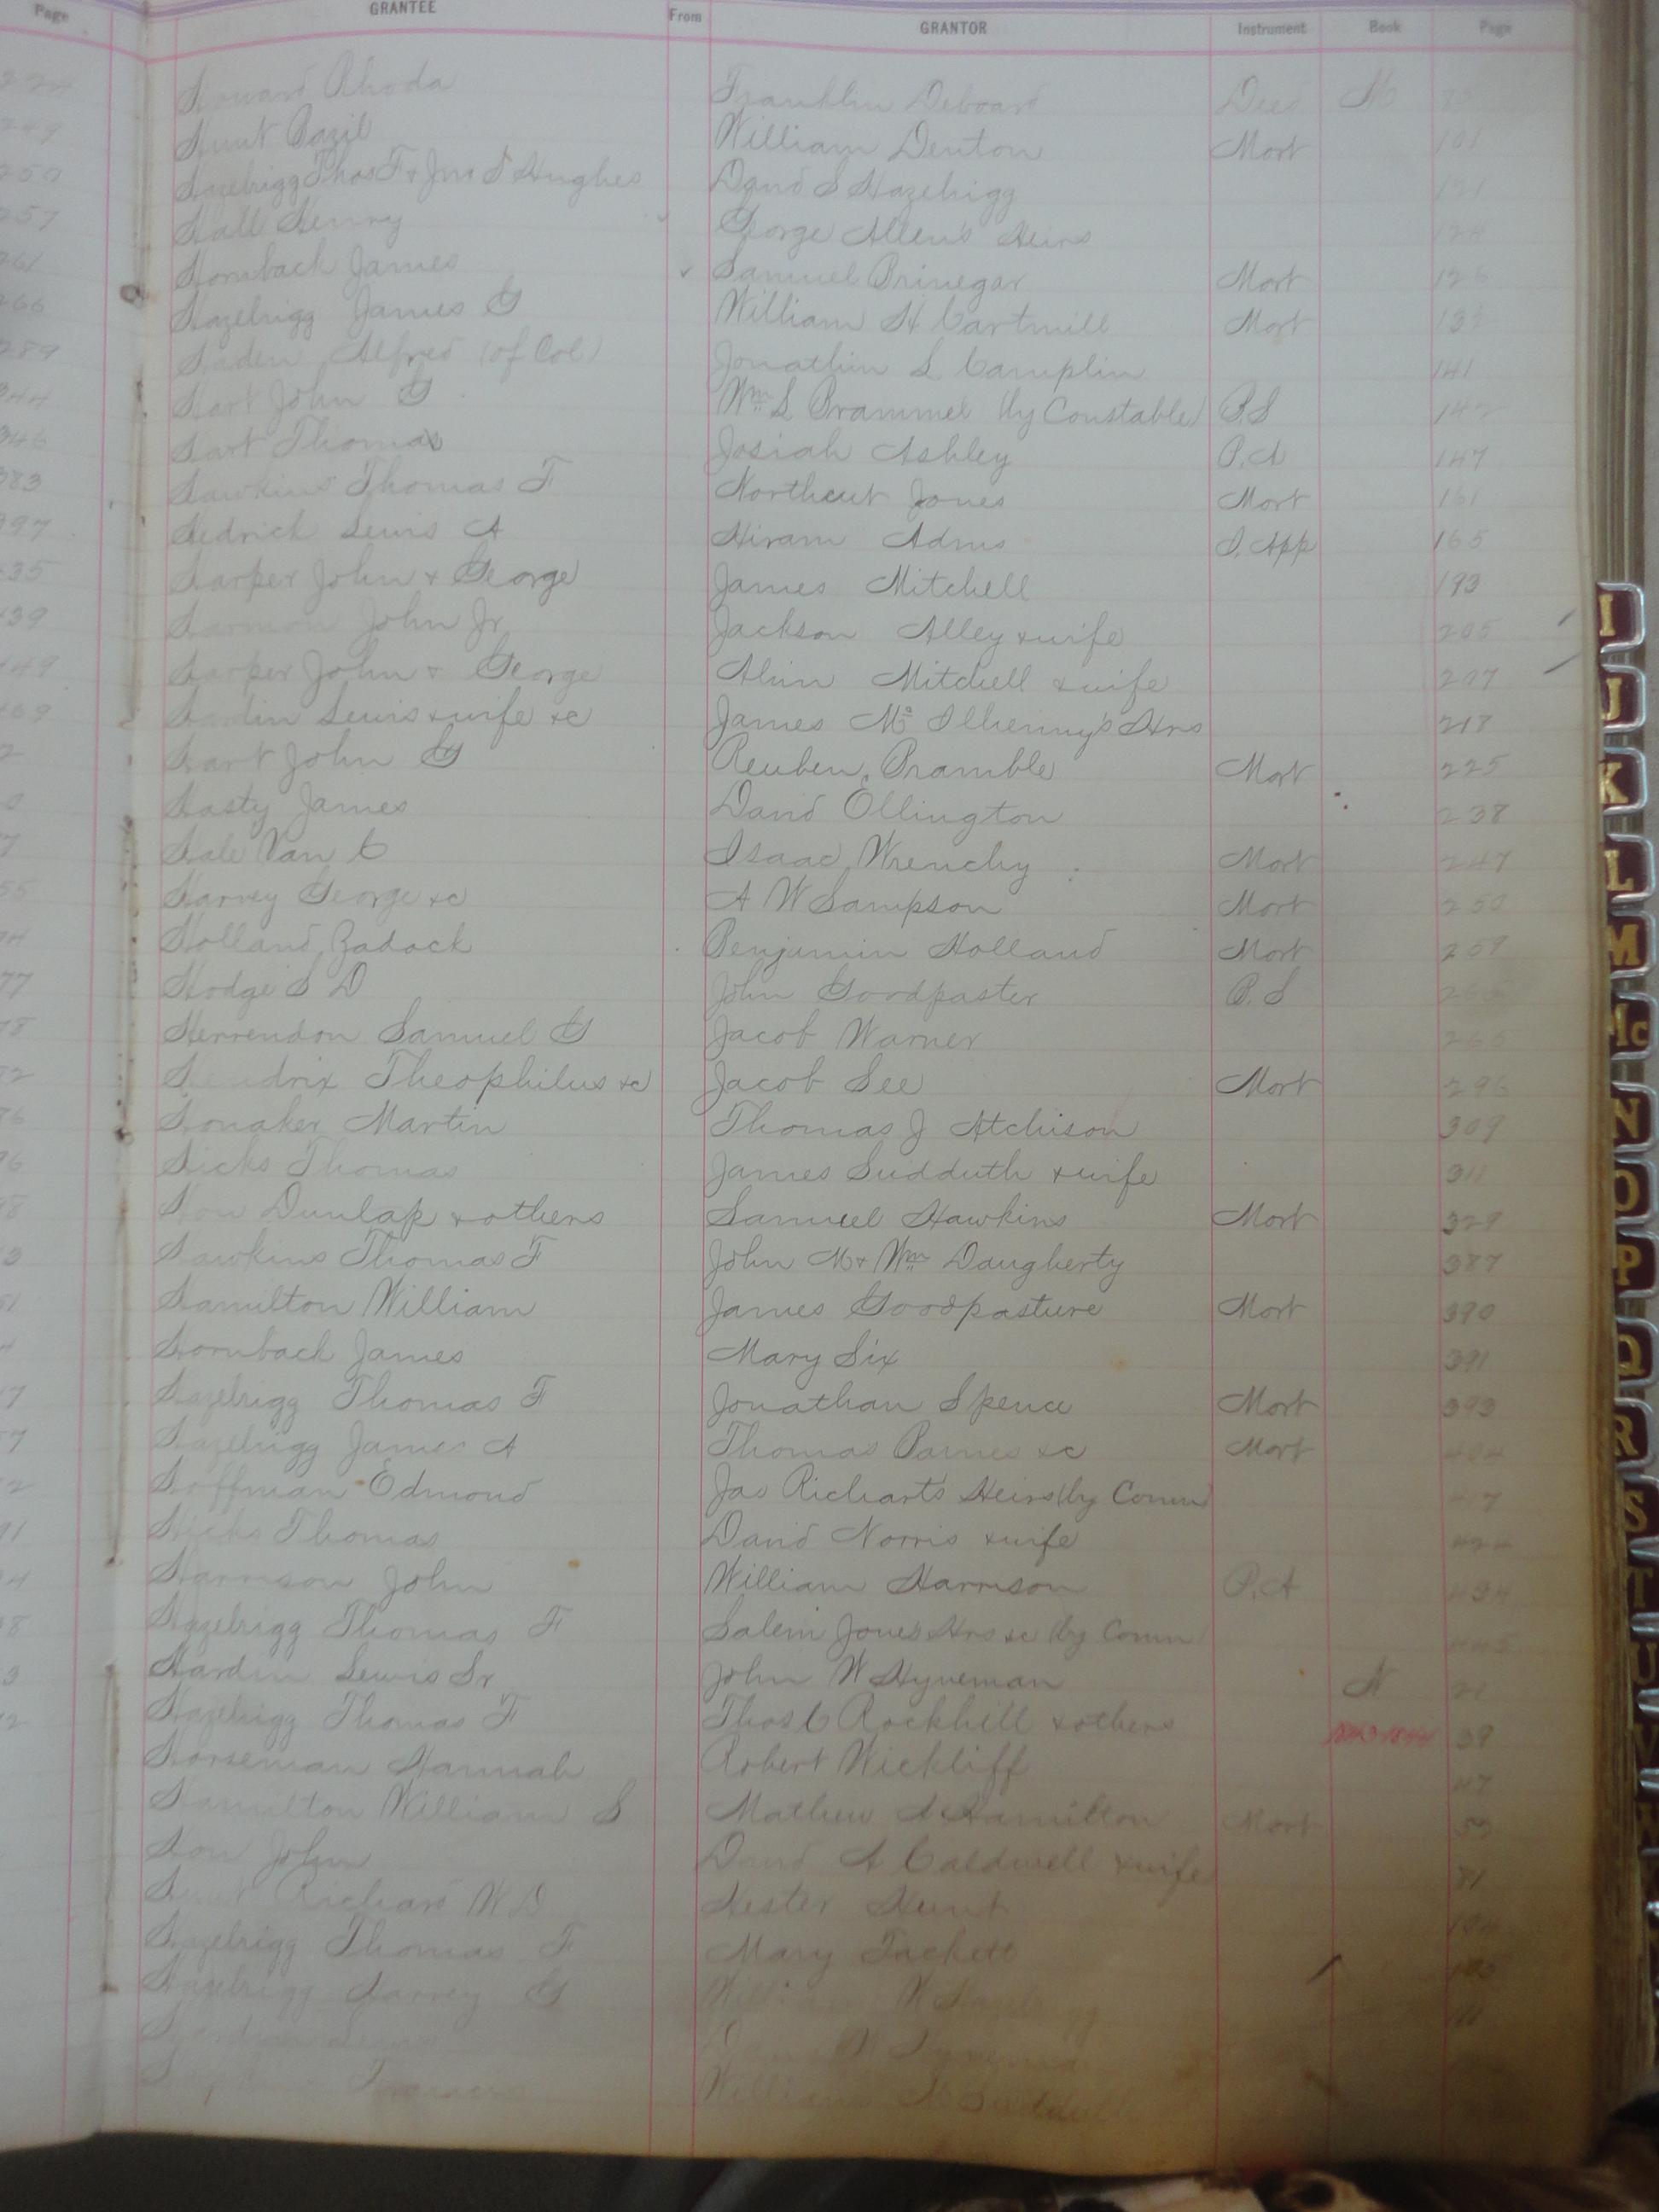 Page GRANTEE From GRANTOR Instrument Book Page
Howard Rhoda Franklin Deboard Deed
249 Hunt Bazil William Denton Mort 101
250 Hazelrigg Thos F & Jno S Hughes David S Hazelrigg 121
257 Hall Henry George Allen's Heirs 124
261 Hornback James Samuel Brinegar Mort 126
266 Hazelrigg James G William H Cartmill Mort
289 Haden Alfred (of Col) Jonathin L Camplin 141
344 Hart John G Wm L Brammel (by Constable) B.S 142
346 Hart Thomas Josiah Ashley P.A 147
383 Hawkins Thomas F Northcut Jones Mort 161
397 Hedrick Lewis A Hiram Adms I. App 165
435 Harper John & George James Mitchell 193
439 Harmon John Jr Jackson Alley & wife 205
449 Harper John & George Mitchell & wife 207
469 Hardin Lewis & wife &c James Mc Ilhenny's Hrs 217
2 Hart John G Reuben Bramble Mort 225
Hasty James David Ellington 238
7 Hale Van C Isaac Wrenchy Mort 247
55 Harvey George &c A W Sampson Mort 250
Holland Zadock Benjamin Holland Mort 259
77 Hodge S D John Goodpaster B.S
78 Herrendon Samuel G Jacob Warner 266
Hendrix Theophilus &c Jacob See Mort 296
Honaker Martin Thomas J Atchison 309
Hicks Thomas James Sudduth & wife 311
How Dunlap & others Samuel Hawkins Mort 329
3 Hawkins Thomas F John M & Wm Daugherty 387
Hamilton William James Goodpasture Mort 390
Hornback James Mary Six 391
7 Hazelrigg Thomas F Jonathan Spence Mort 393
7 Hazelrigg James A Thomas Barnes &c Mort 404
2 Hoffman Edmond Jas Richarts Heirs (by Comm)
91 Hicks Thomas David Norris & wife
4 Harrison John William Harrison P.A 434
8 Hazelrigg Thomas F Salem Jones Hrs &c (by Comm) 445
3 Hardin Lewis Sr John W Hyneman N 21
2 Hazelrigg Thomas F Thos C Rockhill & others 39
Horseman Hannah Robert Wickliff 47
Hamilton William S Mathew A Hamilton Mort 53
How John David A Caldwell & wife 81
Hunt Richard W D Hester Hunt 104
Hazelrigg Thomas F Mary Tackett 105
Hazelrigg Harvey G William W Hazelrigg
William Sudduth
I
J
K
L
M
Mc
N
O
P
Q
R
S
T
U
V